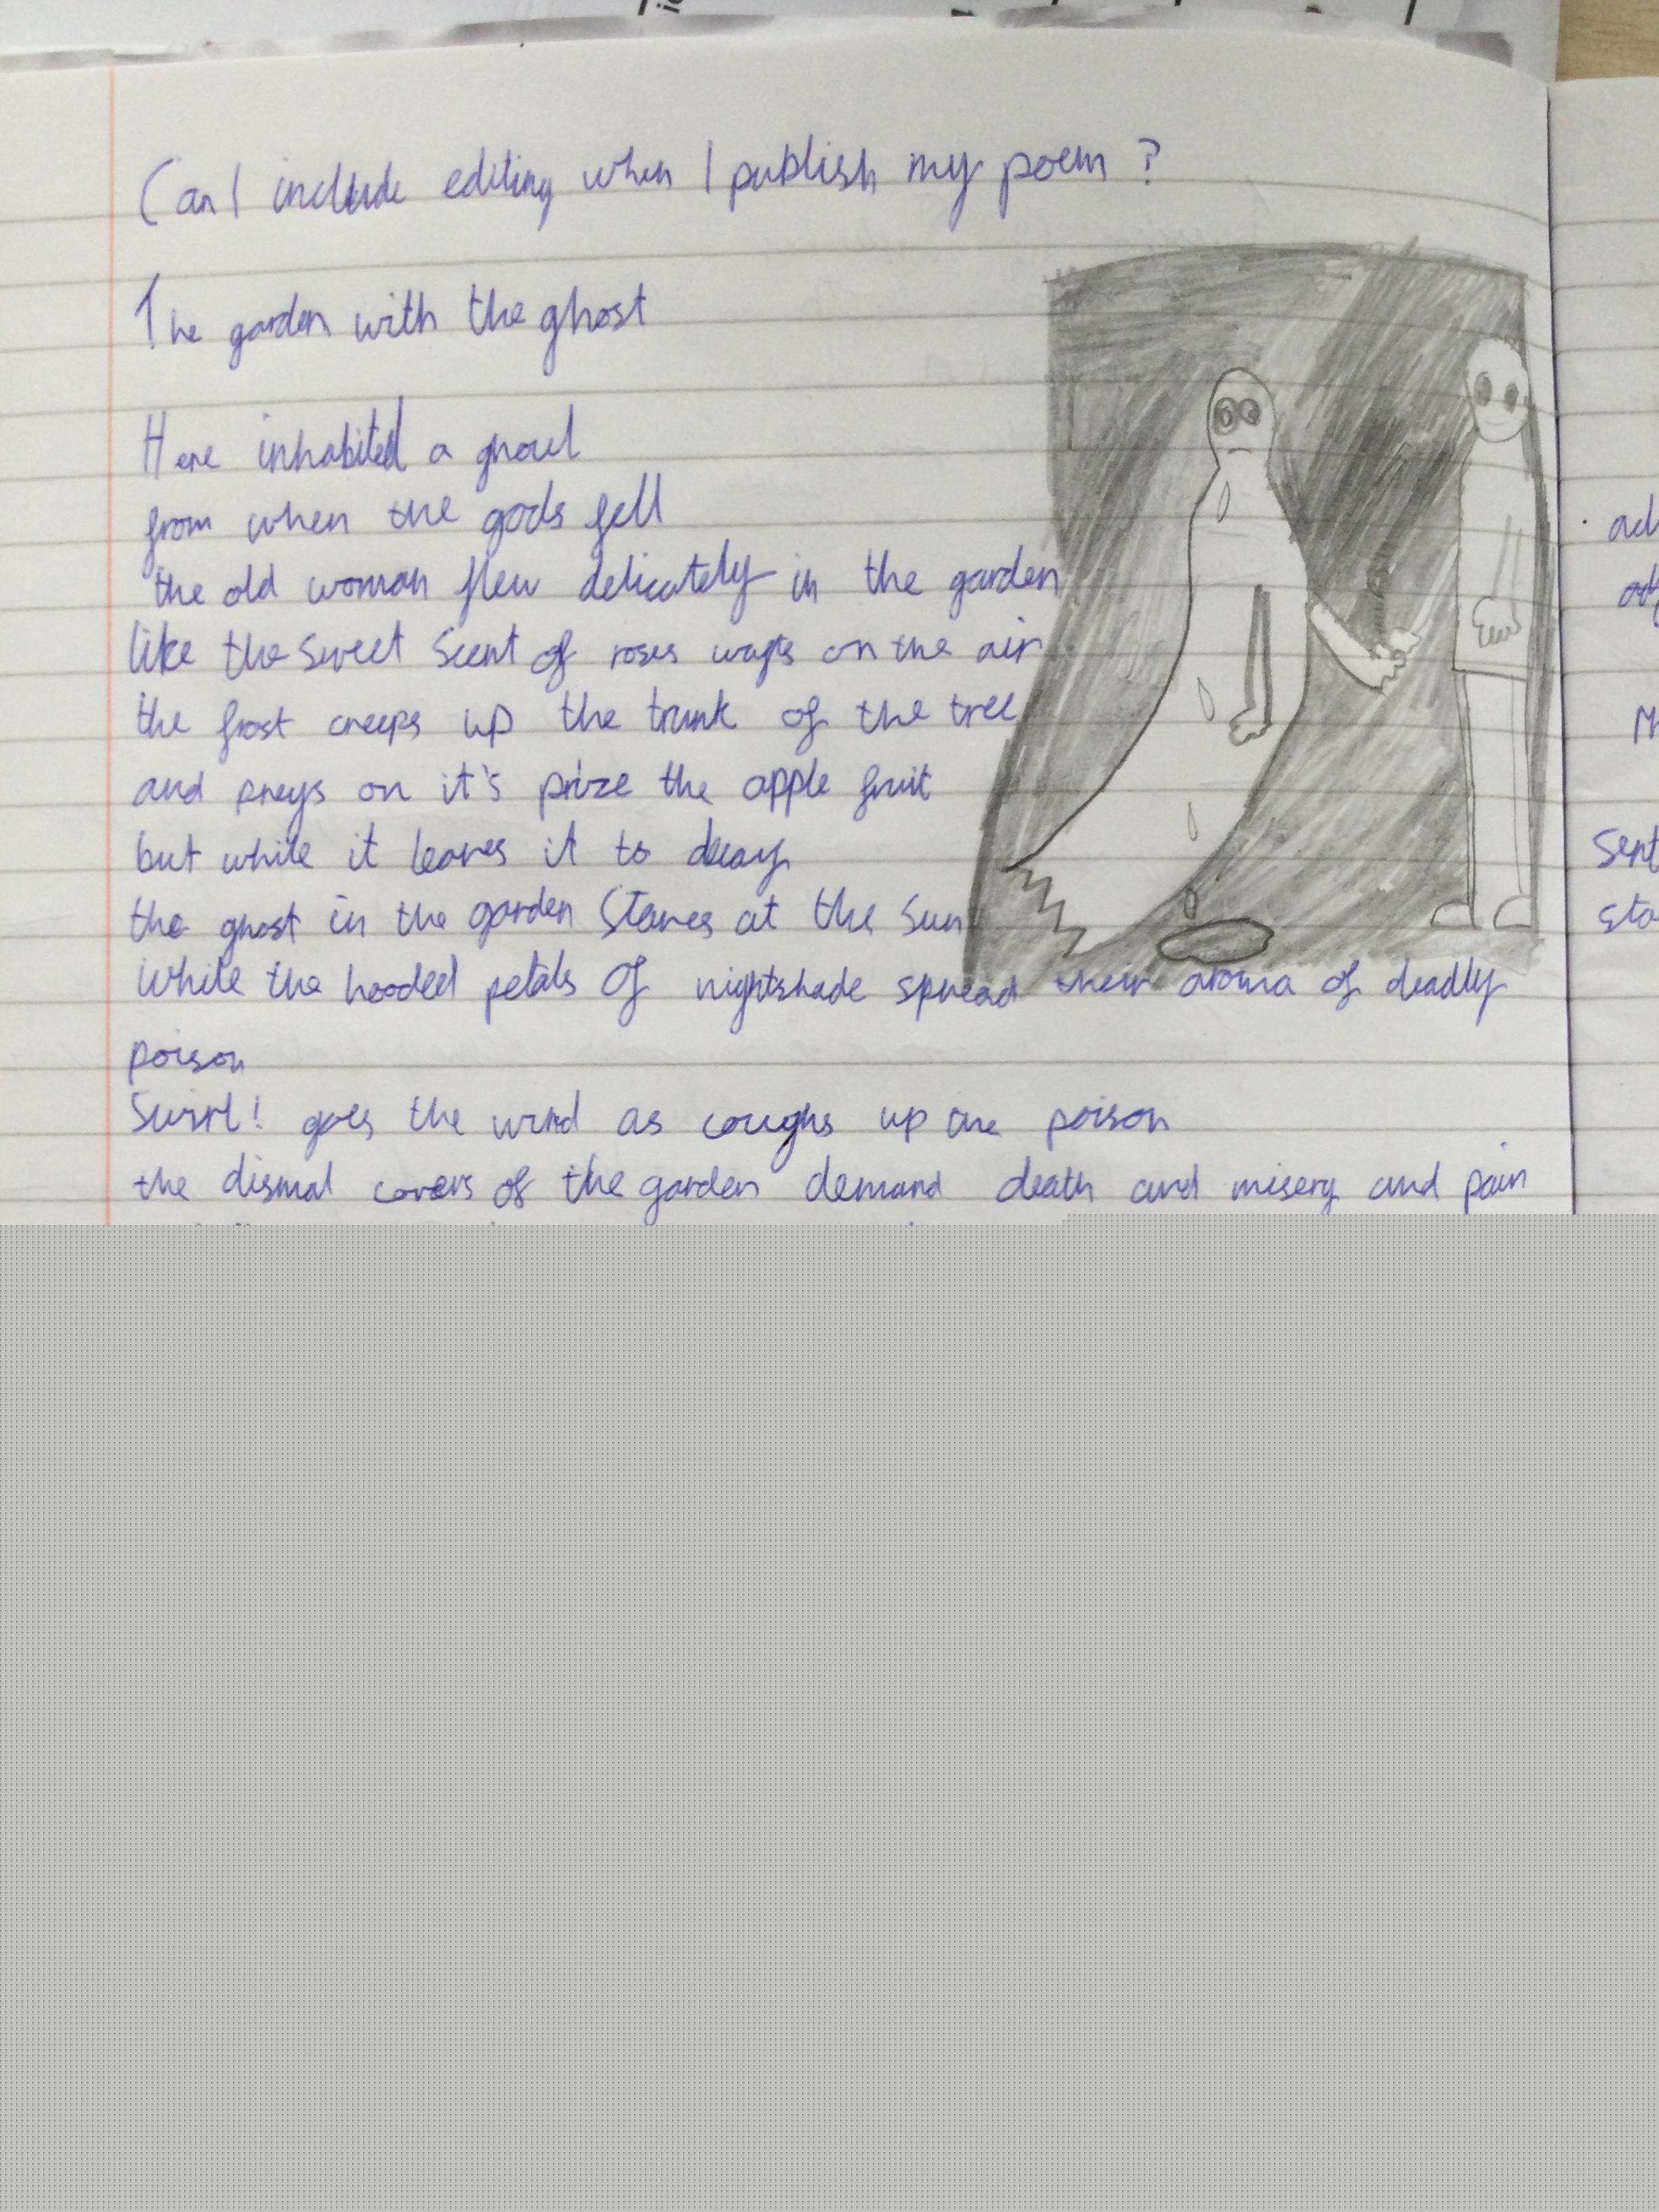 Can I include editing when I publish my poem?
The garden with the ghost
Here inhabited a ghoul
from when the gods fell
the old woman flew delicately in the garden
like the sweet scent of roses wafts on the air
the frost creeps up the trunk of the tree
and preys on it's prize the apple fruit
but while it leaves it to decay
the ghost in the garden stares at the sun
while the hooded petals of nightshade spread their aroma of deadly
poison
Swirl! goes the wind as coughs up the poison
the dismal covers of the garden demand death and misery and pain